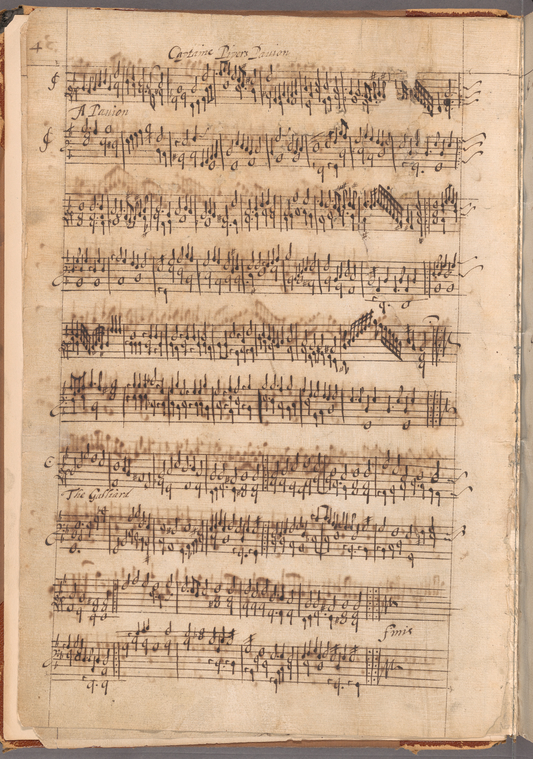 4
Captaine Pipers Pavion
A Pavion
The Galliard
finis